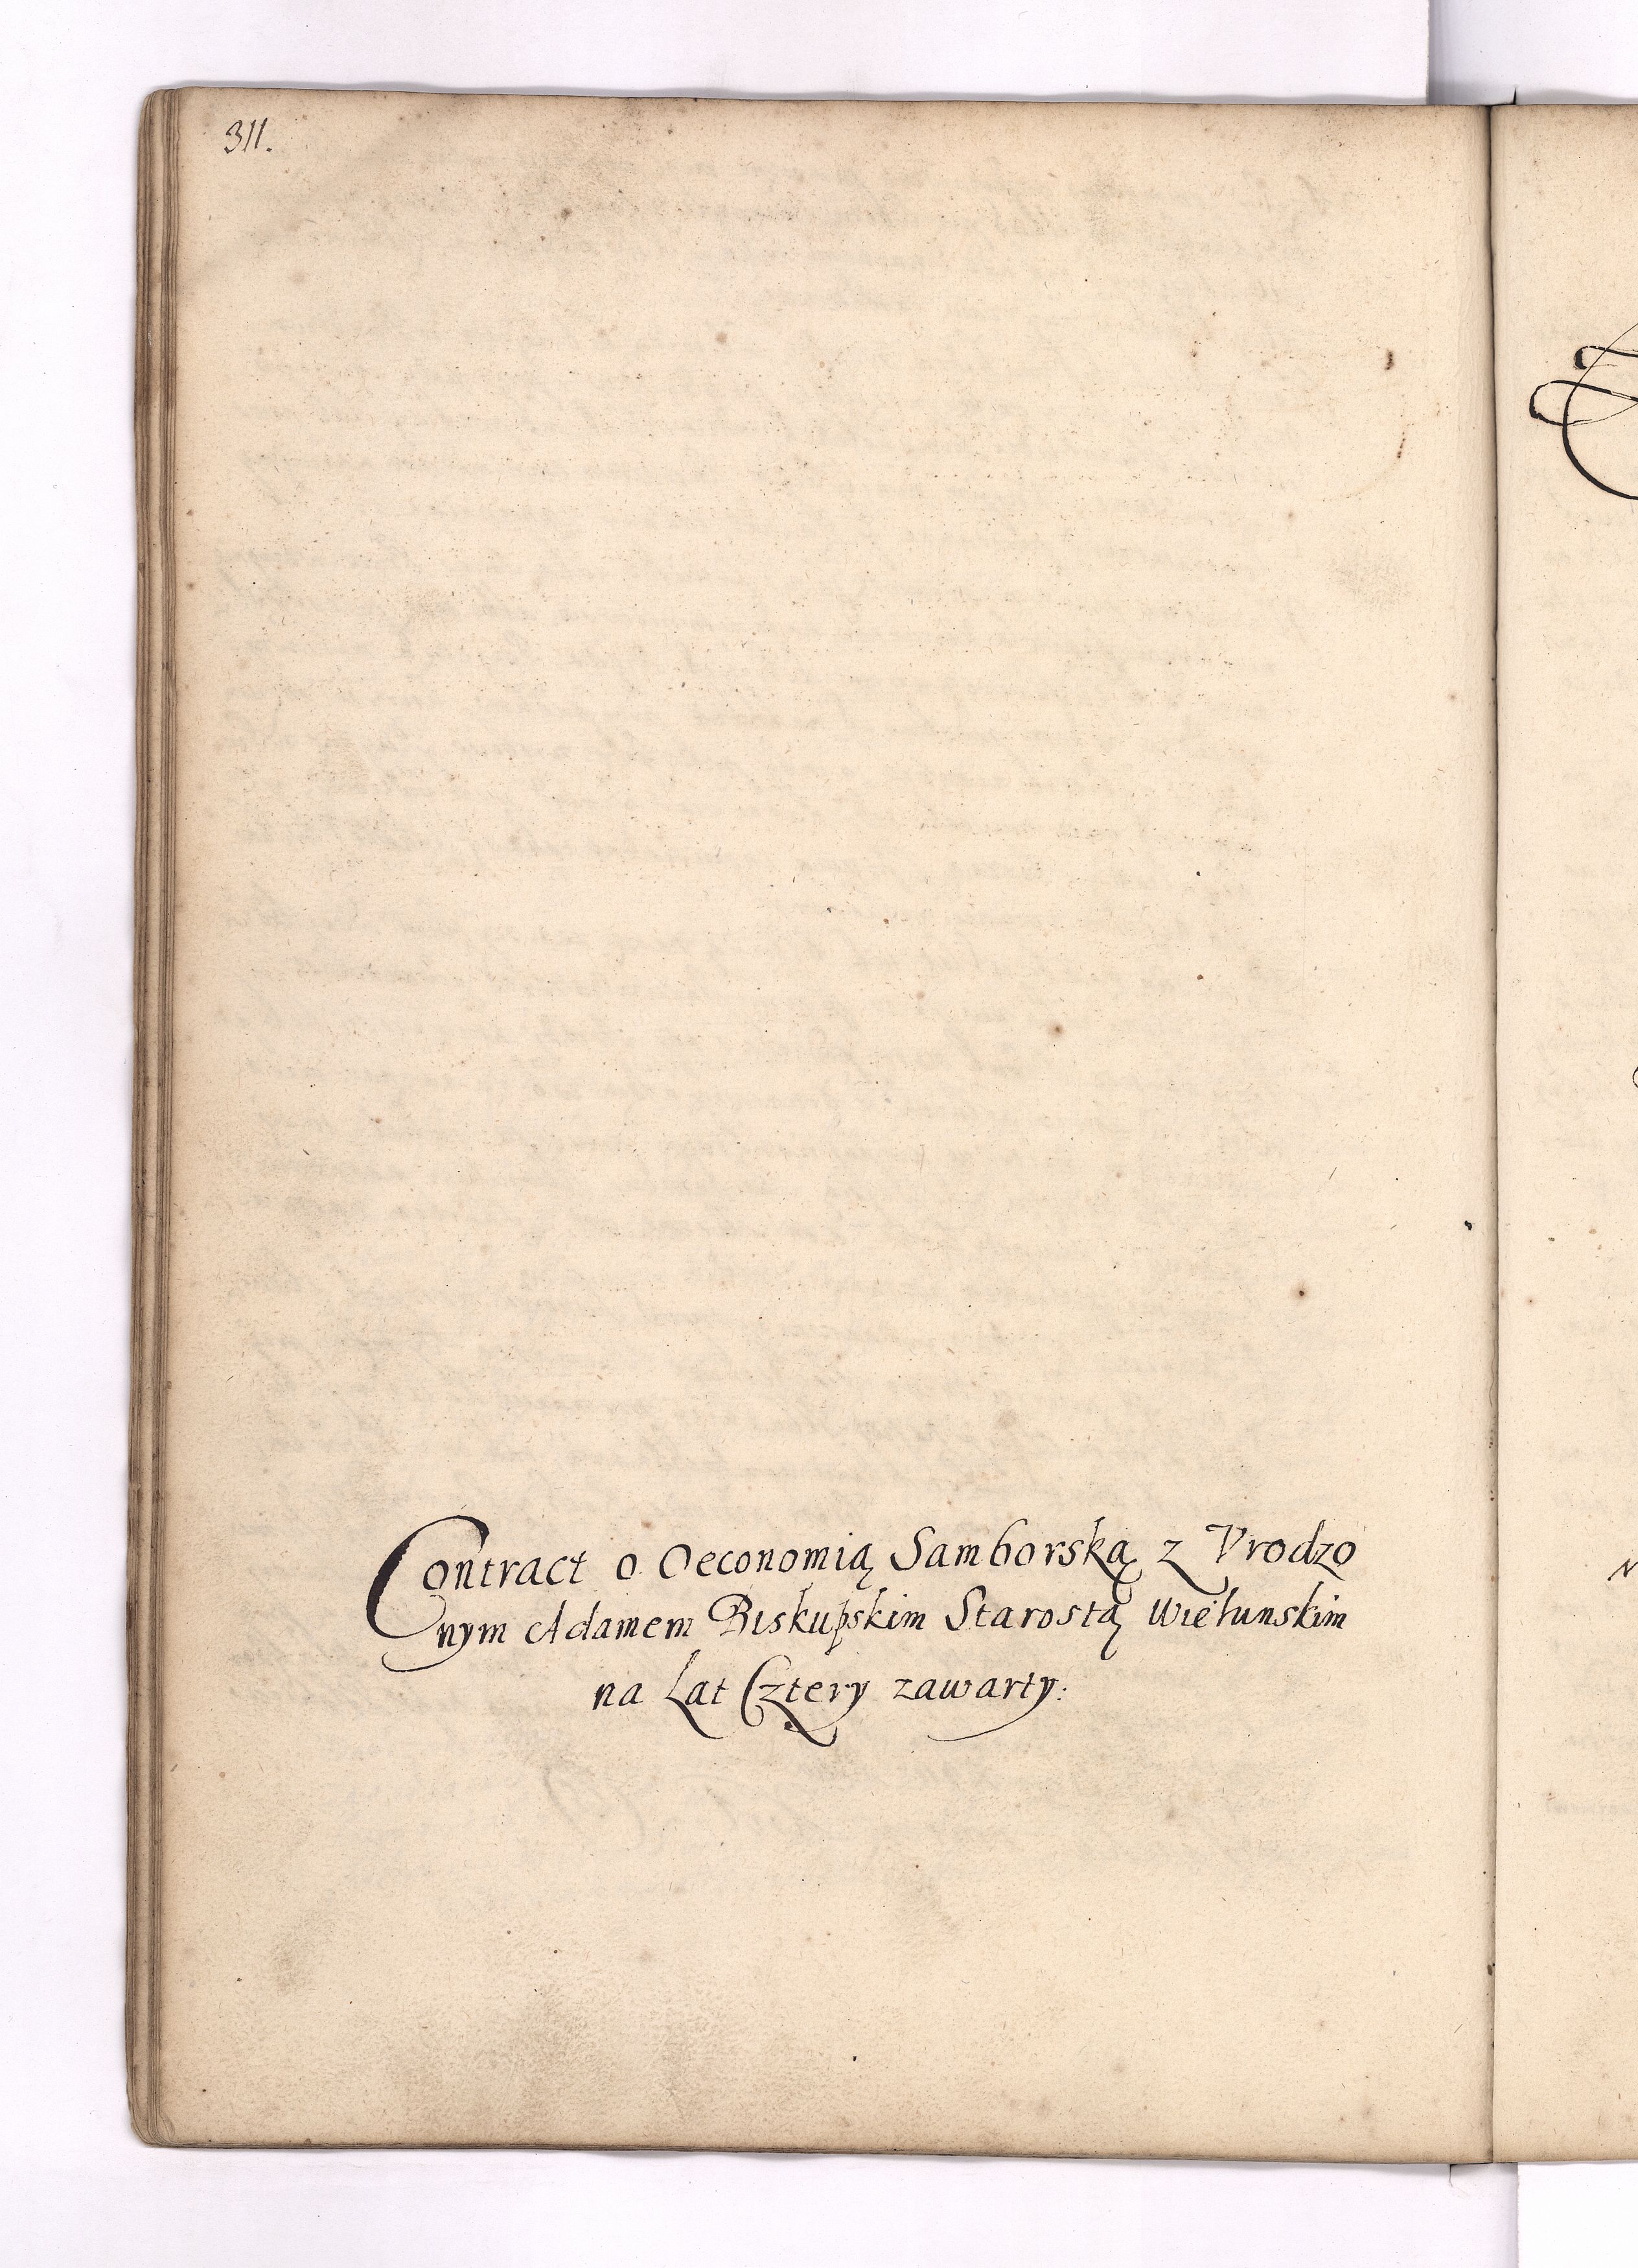 311.
Contract o Oeconomią Samborską z Vrodzo
nym Adamem Biskupskim Starostą Wielunskim
na Lat Cztery zawarty: